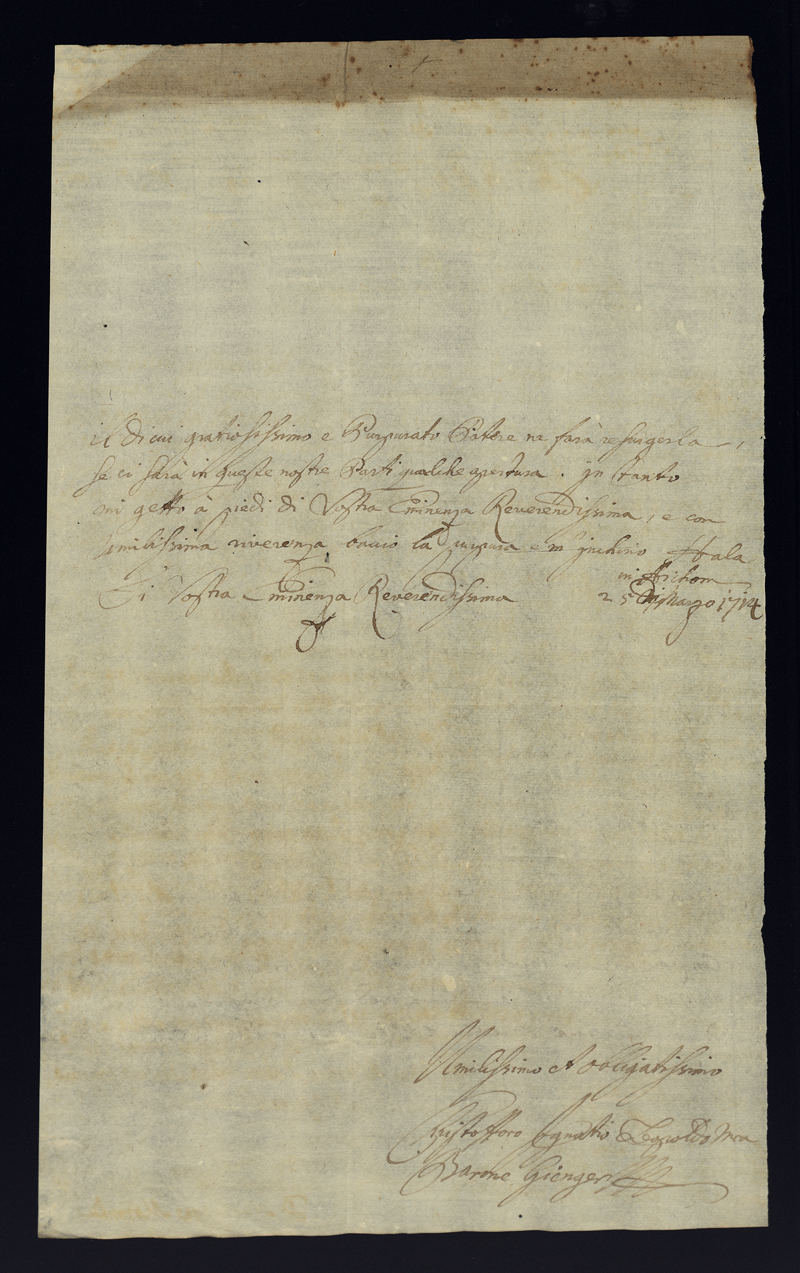 il di cui gratiosissimo e Purpurato Fattore ne farà resurgerla,
se ci sarà in queste nostre Parti qualche apertura. jn tanto
mi getto à piedi di Vostra Eminenza Reverendissima, e con
umilissima riverenza baccio la purpura e m'jnchino Hala
in
25 di Marzo 1714
Di Vostra Eminenza Reverendissima
Umilissimo et obligatissimo
Cristofforo Ignatio Leopoldo
Barone Gienger